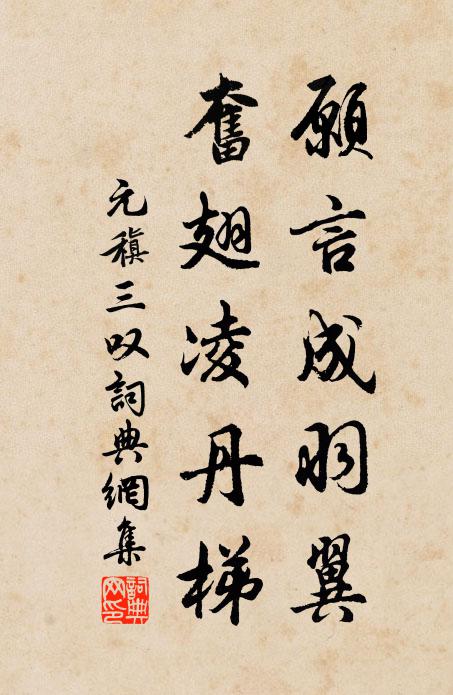 願言成羽翼
奮翅凌丹梯
元稹三叹詞典網集
詞典網印